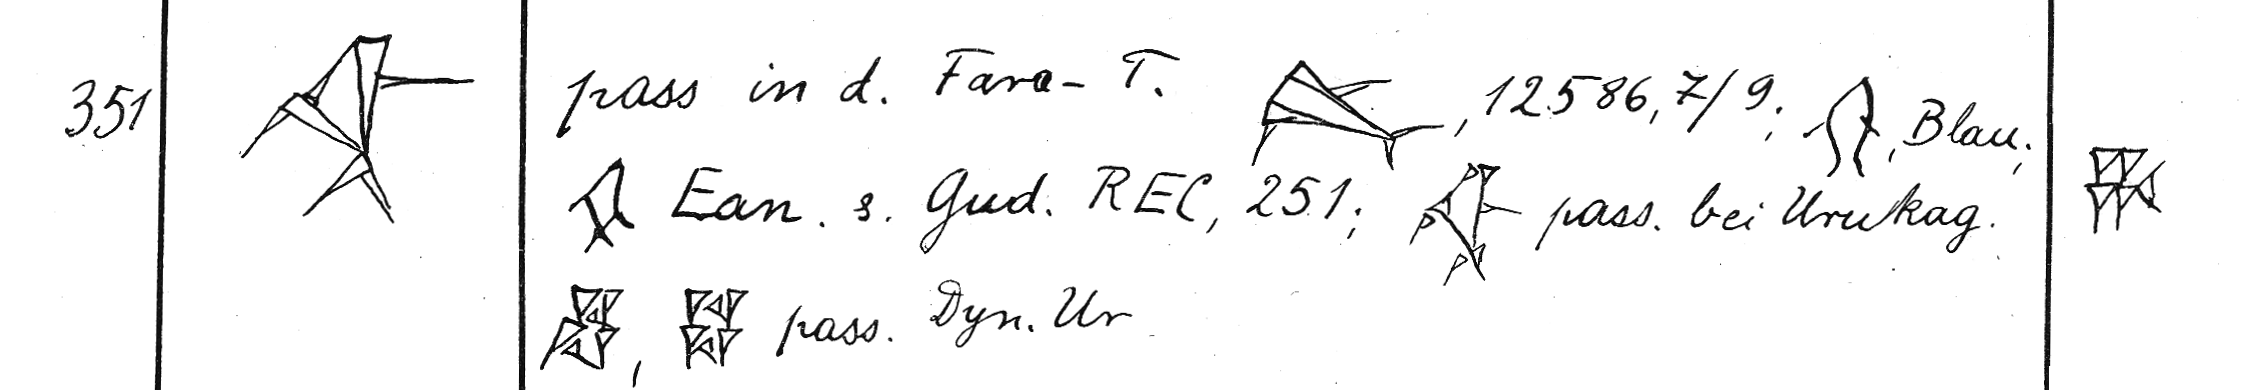 351 pass in d. Fara-T. , 12586, 7/9; , Blau;
Ean. s. Gud. REC, 251; pass. bei Urukag.
, pass. Dyn. Ur